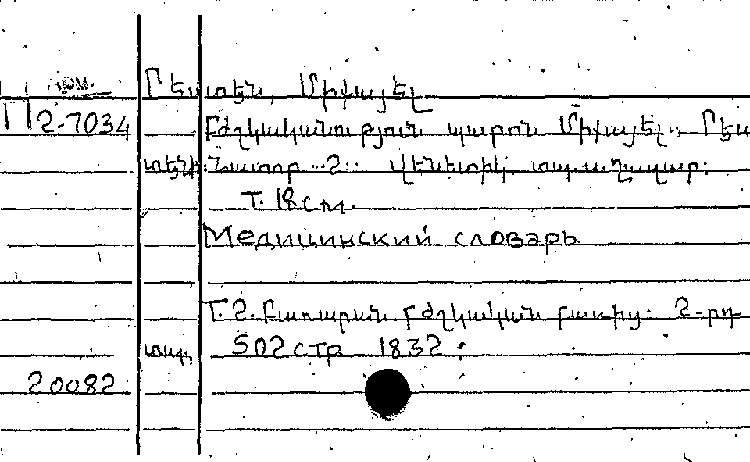 Րեստէն, Միքայէլ
П2-7034 Բժշկականութիւն պարոն Միքայէլ Րես
տէնի: Հատոր 2: Վենետիկ, տպ. ս. Ղազար:
Т. 18 см.
Медицинский словарь
Т.2. Բառարան բժշկական բառից. 2-րդ
տպ, 502 стр 1832:
20082